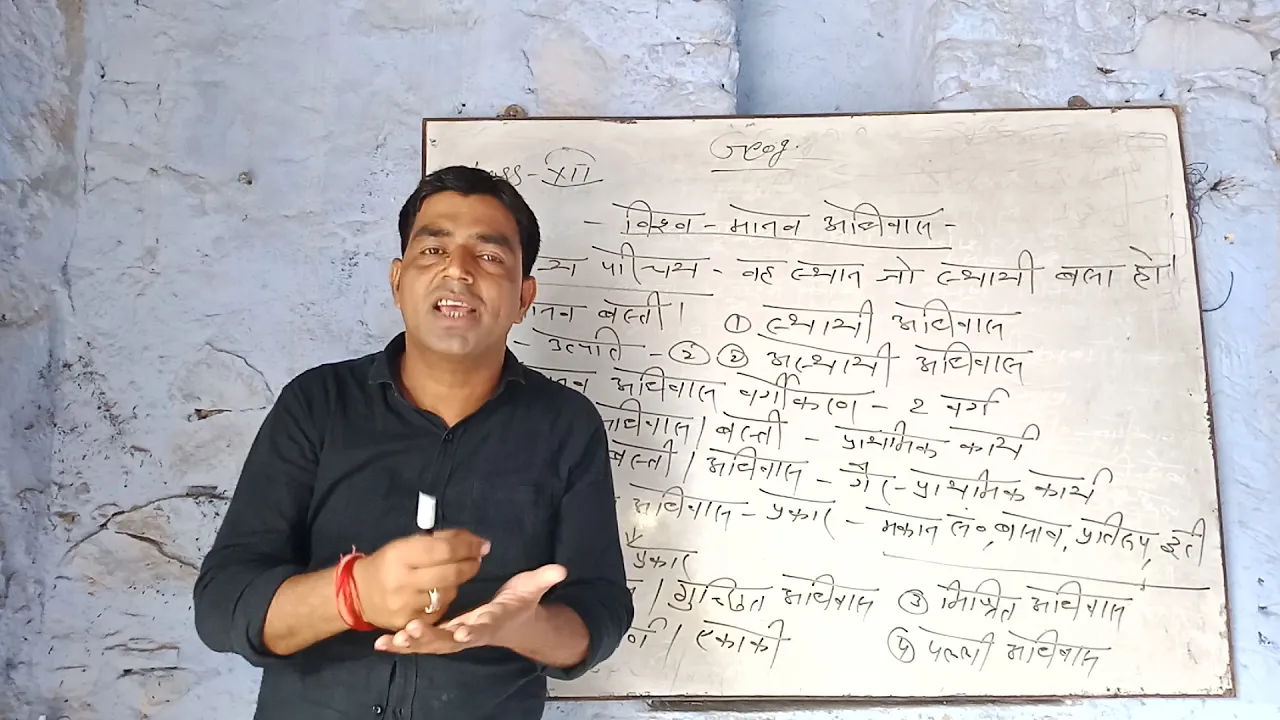 Geog.
XII
- विश्व - मानव अधिवास -
परिचय - वह स्थान जो स्थायी बसा हो।
बस्ती। ① स्थायी अधिवास
- उत्पत्ति - ② ② अस्थायी अधिवास
अधिवास वर्गीकरण - 2 वर्ग
अधिवास / बस्ती - प्राथमिक कार्य
बस्ती / अधिवास - गैर-प्राथमिक कार्य
अधिवास - प्रकार - मकान सं०, बसाव, प्रतिरूप, दूरी
प्रकार
/ गुच्छित अधिवास ③ मिश्रित अधिवास
/ एकाकी ④ पल्ली अधिवास